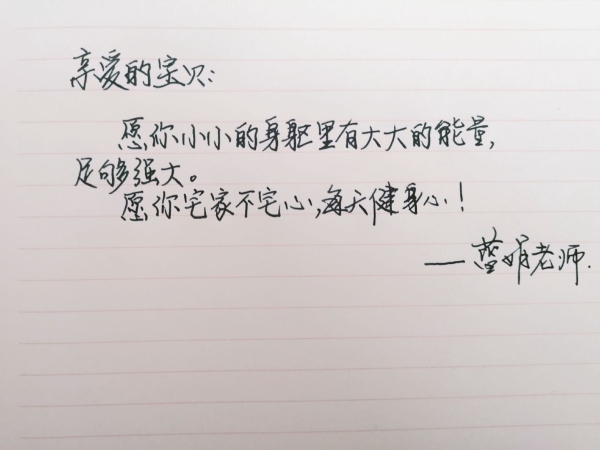 亲爱的宝贝:
愿你小小的身躯里有大大的能量,
足够强大。
愿你宅家不宅心,每天健身心!
——蓝娟老师.